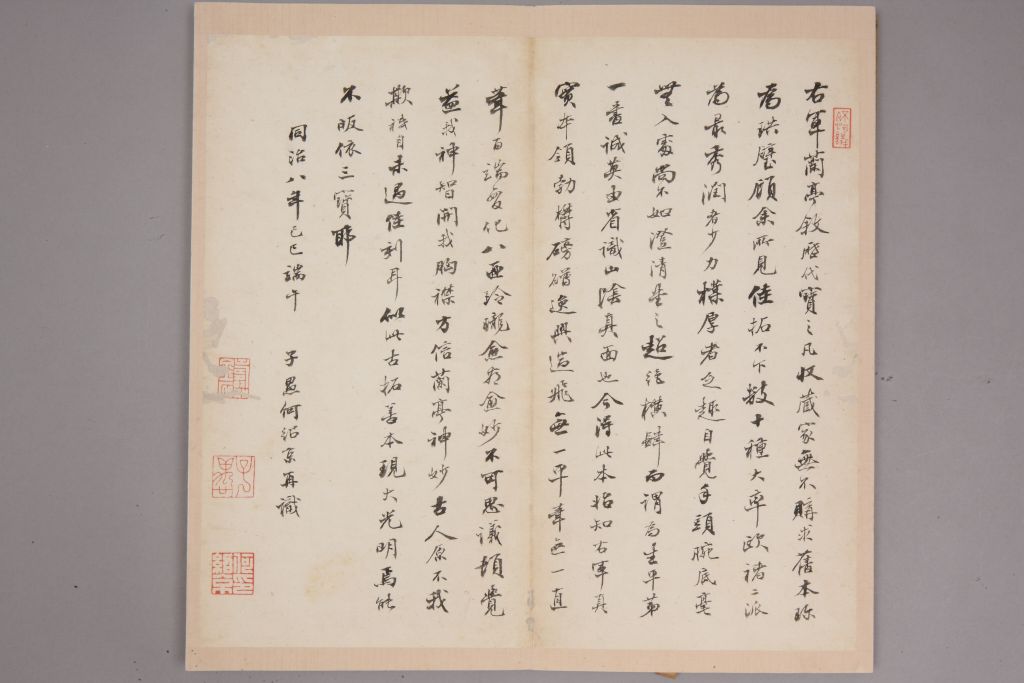 右軍蘭亭敘歷代寶之凡收藏家無不購求舊本珍
為拱璧顧余所見佳拓不下數十種大率歐褚二派
為最秀潤者少力樸厚者乏趣自覺手頭腕底毫
無入處尚不如澄清堂之超縱橫肆而謂為生平第
一者誠莫由省識山陰真面也今得此本始知右軍真
實本領勃欝磅礴逸興遄飛無一平筆無一直
筆百端變化八面玲瓏愈看愈妙不可思議頓覺
益我神智開我胸襟方信蘭亭神妙古人原不我
欺祗自未遇佳刻耳似此古拓善本現大光明焉能
不皈依三寶耶
同治八年己巳端午 子愚何紹京再識
子愚
何紹京印